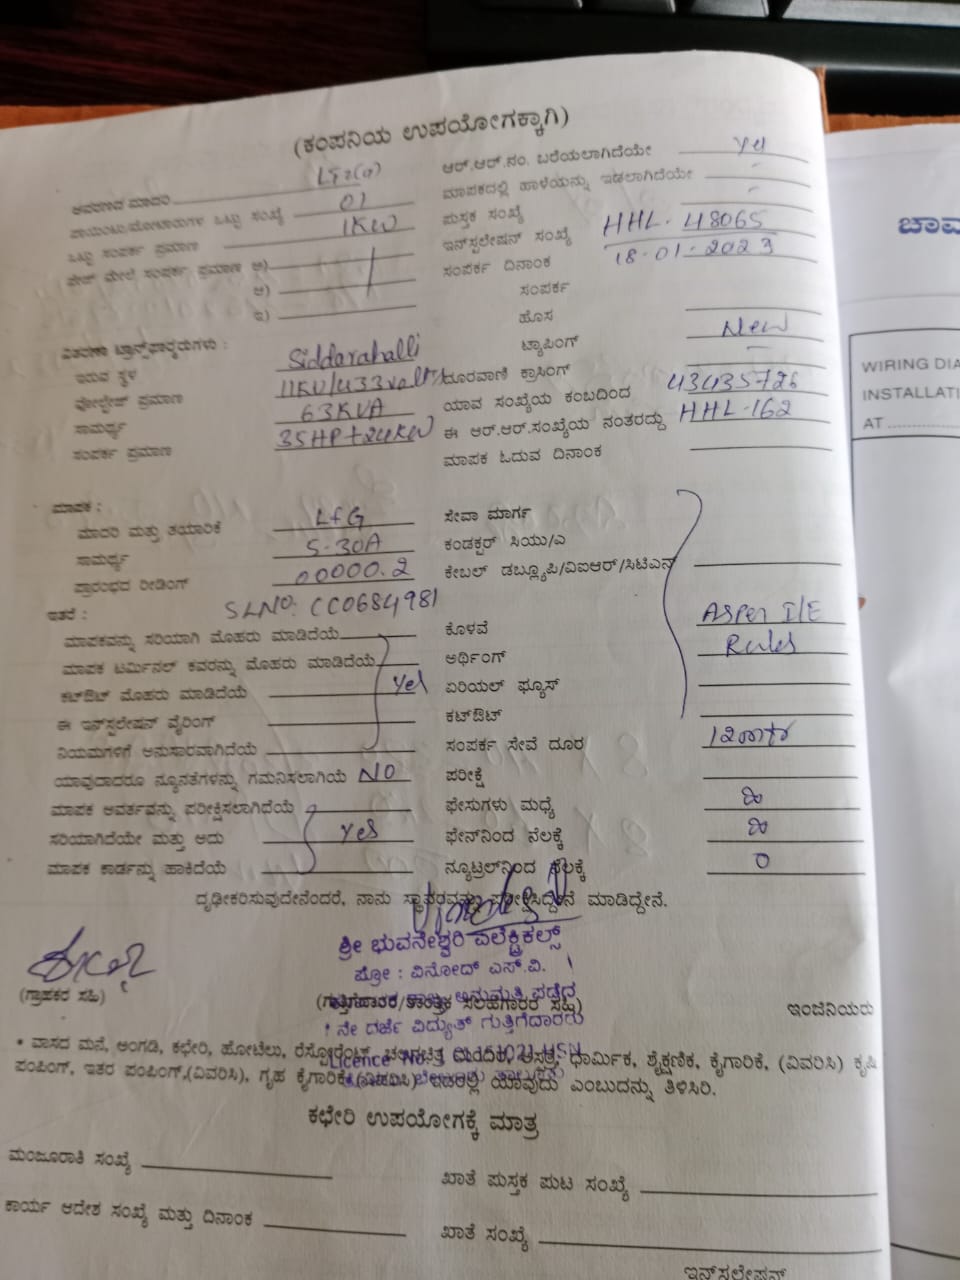 (ಕಂಪನಿಯ ಉಪಯೋಗಕ್ಕಾಗಿ)
ಆವರಣದ ಮಾದರಿ LT2(a)
ಪಾಯಿಂಟು/ಮೋಟಾರುಗಳ ಒಟ್ಟು ಸಂಖ್ಯೆ 01
ಒಟ್ಟು ಸಂಪರ್ಕ ಪ್ರಮಾಣ 1KW
ಫೇಜ್ ಮೇಲೆ ಸಂಪರ್ಕ ಪ್ರಮಾಣ ಅ)
ಆ)
ಇ)
ವಿತರಣಾ ಟ್ರಾನ್ಸ್‌ಫಾರ್ಮರುಗಳು :
ಇರುವ ಸ್ಥಳ Siddarahalli
ವೋಲ್ಟೇಜ್ ಪ್ರಮಾಣ 11KV/433volts
ಸಾಮರ್ಥ್ಯ 63KVA
ಸಂಪರ್ಕ ಪ್ರಮಾಣ 35HP+24KW
ಮಾಪಕ :
ಮಾದರಿ ಮತ್ತು ತಯಾರಿಕೆ L&G
ಸಾಮರ್ಥ್ಯ 5-30A
ಪ್ರಾರಂಭದ ರೀಡಿಂಗ್ 00000.2
ಇತರೆ : SLNO: CC0684981
ಮಾಪಕವನ್ನು ಸರಿಯಾಗಿ ಮೊಹರು ಮಾಡಿದೆಯೆ
ಮಾಪಕ ಟರ್ಮಿನಲ್ ಕವರನ್ನು ಮೊಹರು ಮಾಡಿದೆಯೆ
ಕಟ್‌ಔಟ್ ಮೊಹರು ಮಾಡಿದೆಯೆ yes
ಈ ಇನ್‌ಸ್ಟಲೇಷನ್ ವೈರಿಂಗ್
ನಿಯಮಗಳಿಗೆ ಅನುಸಾರವಾಗಿದೆಯೆ
ಯಾವುದಾದರೂ ನ್ಯೂನತೆಗಳನ್ನು ಗಮನಿಸಲಾಗಿಯೆ NO
ಮಾಪಕ ಆವರ್ತವನ್ನು ಪರೀಕ್ಷಿಸಲಾಗಿದೆಯೆ
ಸರಿಯಾಗಿದೆಯೇ ಮತ್ತು ಅದು yes
ಮಾಪಕ ಕಾರ್ಡನ್ನು ಹಾಕಿದೆಯೆ
ಆರ್.ಆರ್.ನಂ. ಬರೆಯಲಾಗಿದೆಯೇ yes
ಮಾಪಕದಲ್ಲಿ ಹಾಳೆಯನ್ನು ಇಡಲಾಗಿದೆಯೇ -
ಪುಸ್ತಕ ಸಂಖ್ಯೆ -
ಇನ್‌ಸ್ಟಲೇಷನ್ ಸಂಖ್ಯೆ HHL-48065
ಸಂಪರ್ಕ ದಿನಾಂಕ 18-01-2023
ಸಂಪರ್ಕ
ಹೊಸ New
ಟ್ಯಾಪಿಂಗ್ -
ದೂರವಾಣಿ ಕ್ರಾಸಿಂಗ್
ಯಾವ ಸಂಖ್ಯೆಯ ಕಂಬದಿಂದ 43435726
ಈ ಆರ್.ಆರ್.ಸಂಖ್ಯೆಯ ನಂತರದ್ದು HHL-162
ಮಾಪಕ ಓದುವ ದಿನಾಂಕ
ಸೇವಾ ಮಾರ್ಗ
ಕಂಡಕ್ಟರ್ ಸಿಯು/ಎ
ಕೇಬಲ್ ಡಬ್ಲ್ಯೂಪಿ/ವಿಐಆರ್/ಸಿಟಿಎಸ್
ಕೊಳವೆ Asper I/E
ಅರ್ಥಿಂಗ್ Rules
ಏರಿಯಲ್ ಫ್ಯೂಸ್
ಕಟ್‌ಔಟ್
ಸಂಪರ್ಕ ಸೇವೆ ದೂರ
ಪರೀಕ್ಷೆ
ಫೇಸುಗಳು ಮಧ್ಯೆ ∞
ಫೇಸ್‌ನಿಂದ ನೆಲಕ್ಕೆ ∞
ನ್ಯೂಟ್ರಲ್‌ನಿಂದ ನೆಲಕ್ಕೆ 0
ದೃಢೀಕರಿಸುವುದೇನೆಂದರೆ, ನಾನು ಸ್ಥಾವರವನ್ನು ಪರೀಕ್ಷಿಸಿದ್ದೇನೆ ಮಾಡಿದ್ದೇನೆ.
ಶ್ರೀ ಭುವನೇಶ್ವರಿ ಎಲೆಕ್ಟ್ರಿಕಲ್ಸ್
ಪ್ರೋ : ವಿನೋದ್ ಎಸ್.ವಿ.
ಅನುಮತಿ ಪಡೆದ
(ಗ್ರಾಹಕರ ಸಹಿ) (ಗುತ್ತಿಗೆದಾರರ/ತಾಂತ್ರಿಕ ಸಲಹಗಾರರ ಸಹಿ) ಇಂಜಿನಿಯರು
ನೇ ದರ್ಜೆ ವಿದ್ಯುತ್ ಗುತ್ತಿಗೆದಾರರು
Licence No.
* ವಾಸದ ಮನೆ, ಅಂಗಡಿ, ಕಛೇರಿ, ಹೋಟೆಲು, ರೆಸ್ಟೋರೆಂಟ್, ಚಲನಚಿತ್ರ ಮಂದಿರ, ಆಸ್ಪತ್ರೆ, ಧಾರ್ಮಿಕ, ಶೈಕ್ಷಣಿಕ, ಕೈಗಾರಿಕೆ, (ವಿವರಿಸಿ) ಕೃಷಿ
ಪಂಪಿಂಗ್, ಇತರ ಪಂಪಿಂಗ್,(ವಿವರಿಸಿ), ಗೃಹ ಕೈಗಾರಿಕೆ (ವಿವರಿಸಿ) ಇದರಲ್ಲಿ ಯಾವುದು ಎಂಬುದನ್ನು ತಿಳಿಸಿರಿ.
ಕಛೇರಿ ಉಪಯೋಗಕ್ಕೆ ಮಾತ್ರ
ಮಂಜೂರಾತಿ ಸಂಖ್ಯೆ
ಖಾತೆ ಪುಸ್ತಕ ಪುಟ ಸಂಖ್ಯೆ
ಕಾರ್ಯ ಆದೇಶ ಸಂಖ್ಯೆ ಮತ್ತು ದಿನಾಂಕ
ಖಾತೆ ಸಂಖ್ಯೆ
ಇನ್‌ಸ್ಟಲೇಷನ್
ಚಾಮ
WIRING DIA
INSTALLATI
AT